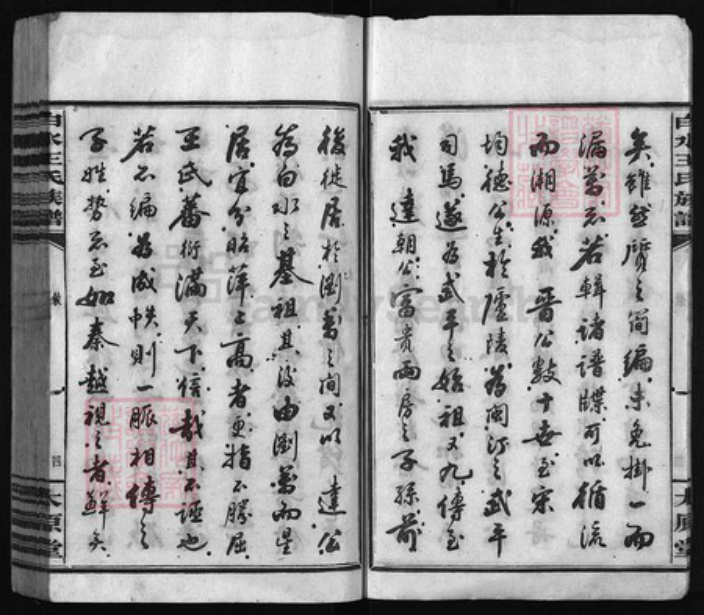 矣雖然賸之簡編未免掛一而
漏萬不若輯諸譜牒可以循流
而湘源我 晋公數十世至宋
均德公生於廬陵為閩汀之武平
司馬遂為武平之始祖又九傳至
我 達朝公富貴兩房之子孫前
後徙居於瀏萬之間又以 達公
為白水之基祖其後由瀏萬而星
居宜分昭萍之高者更指不勝屈
王氏蕃衍滿天下信哉其不誣也
若不編為成帙則一脈相傳之
子姓勢不至如秦越視之者鮮矣
白水王氏族譜
卷一
太原堂
白水王氏族譜
太原堂
FamilySearch